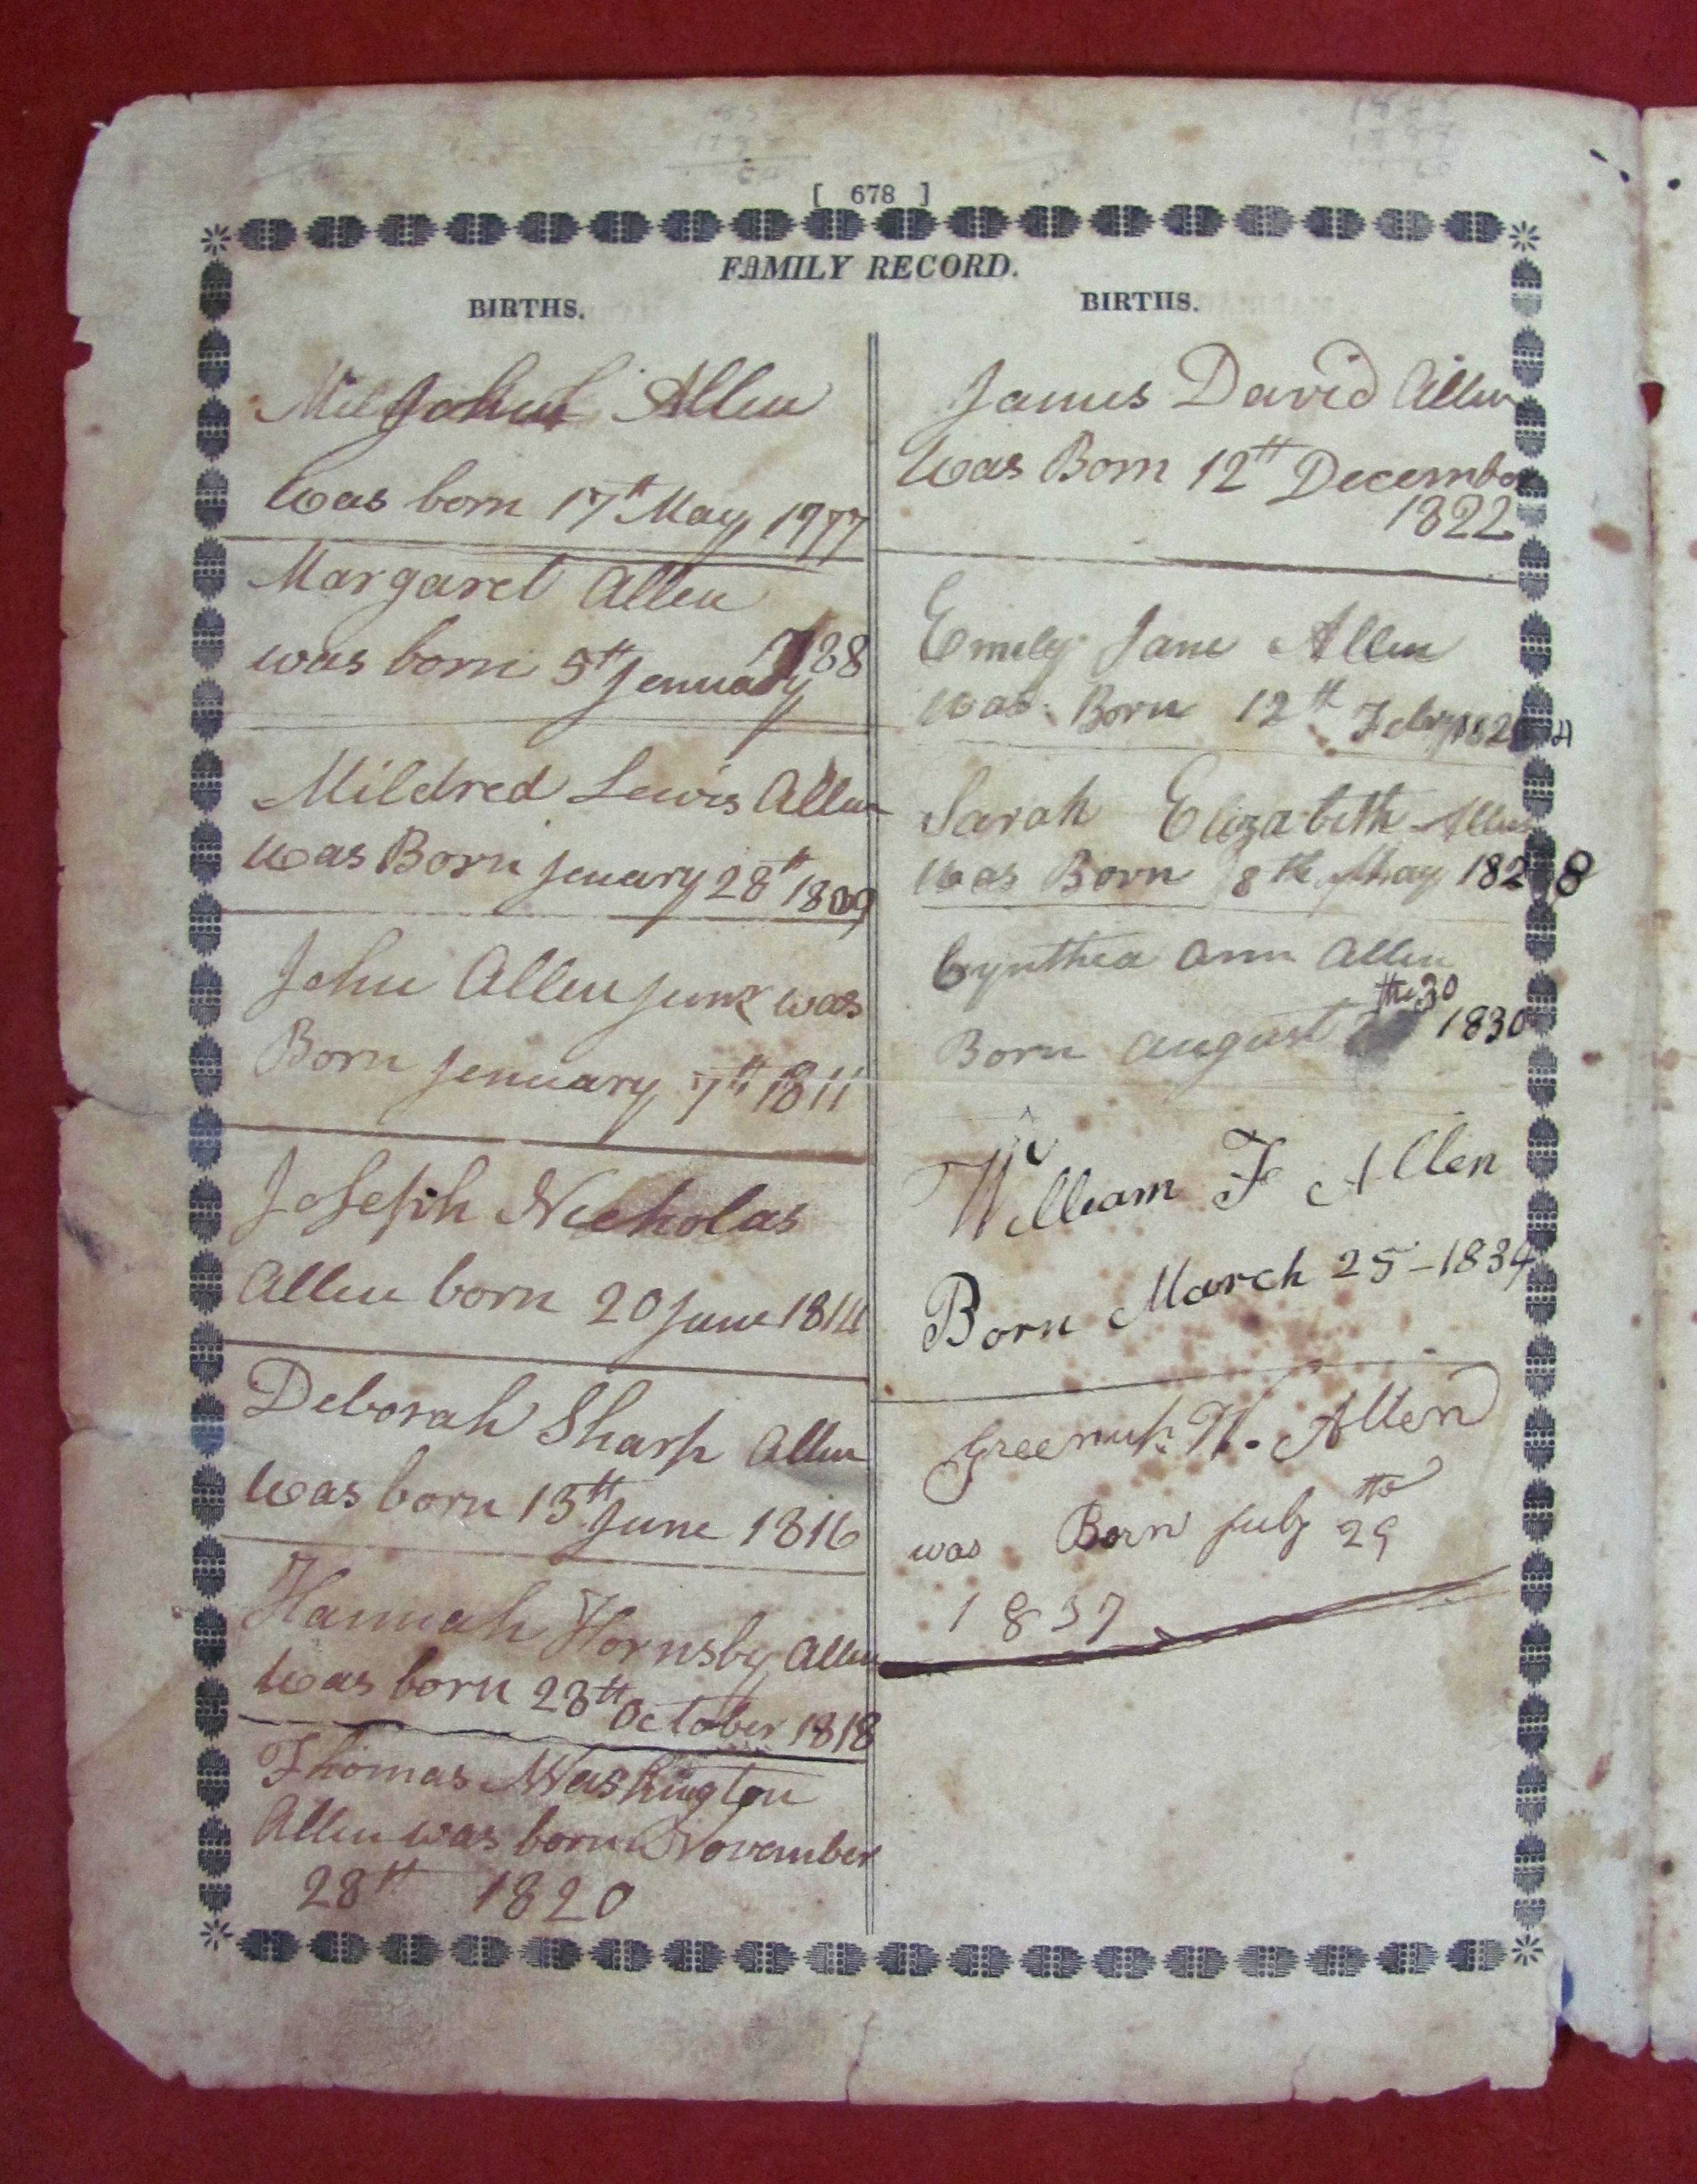 [ 678 ]
FAMILY RECORD.
BIRTHS.
John Allen
was born 17th May 1777
Margaret Allen
1788
was born 5th Jenuary
Mildred Lewis Allen
was Born Jenuary 28th 1809
John Allen Junr was
Born Jenuary 7th 1811
Joseph Nicholas
Allen born 20 June 1814
Deborah Sharp Allen
was born 15th June 1816
Hannah Hornsby Allen
was born 28th October 1818
Thomas Washington
Allen was born November
28th 1820
BIRTHS.
James David Allen
was Born 12th December
1822
Emily Jane Allen
was Born 12th Feby 182 4
Sarah Elizabeth Allen
was Born 8th May 182 8
Cynthea Ann Allen
the 30
Born august 1830
William F Allen
Born March 25-1834
Greenup W. Allen
was Born July 29th
1837